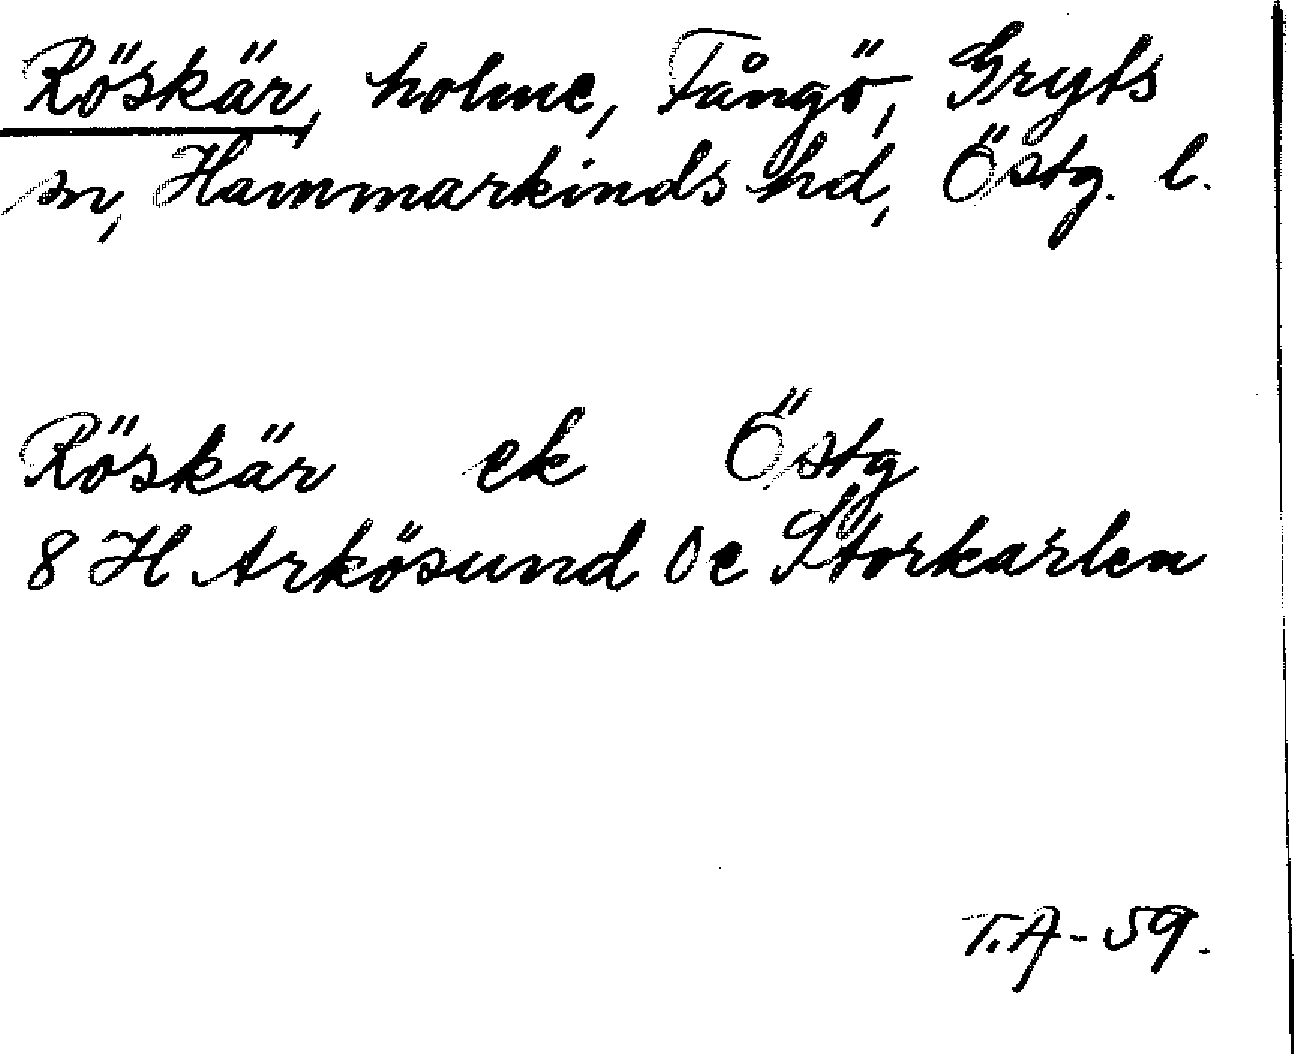 Röskär, holme, Fångö, Gryts
sn, Hammarkinds hd, Östg. l.
Röskär ek Östg
8 H Arkösund 0 e Storkarlen
T.A-59.